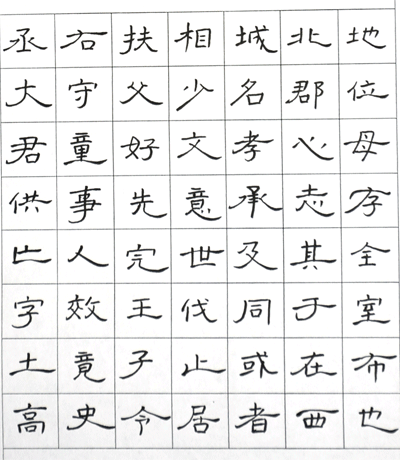 丞右扶相城北地
大守父少名郡位
君童好文孝心母
供事先意承志存
亡人完世及其全
字效王伐同于室
土竟子止或在布
高史令居者西也